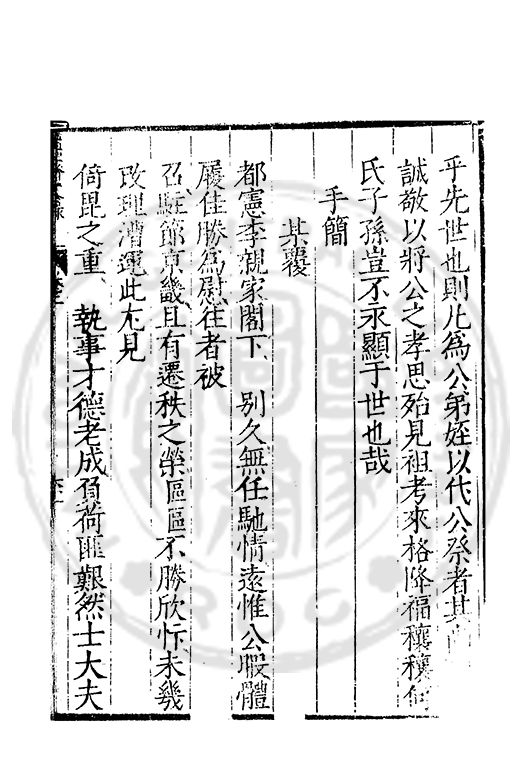 乎先世也則凡為公弟姪以代公祭者其
誠敬以將公之孝思殆見祖考來格降福穰穰
氏子孫豈不永顯于世也哉
手簡
其覆
都憲李親家閣下別久無任馳情遠惟公暇體
履佳勝為慰往者被
召駐節京畿且有遷秩之榮區區不勝欣忭未幾
改理漕運此尤見
倚毘之重執事才德老成負荷匪艱然士大夫